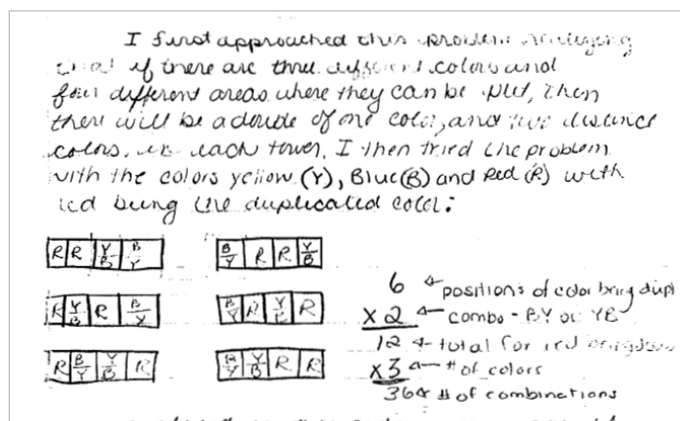 I first approached this problem analyzing
that if there are three different colors and
four different areas where they can be put, then
there will be a double of one color, and two distinct
colors. in each tower. I then tried the problem
with the colors yellow (Y), Blue (B) and Red (R) with
red being the duplicated color:
R R Y/B B/Y
B/Y R R Y/B
R Y/B R B/Y
B/Y R Y/B R
R B/Y Y/B R
B/Y Y/B R R
6 ← positions of color being dupl
x 2 ← combo - BY or YB
12 ← total for red
x 3 ← # of colors
36 ← # of combinations